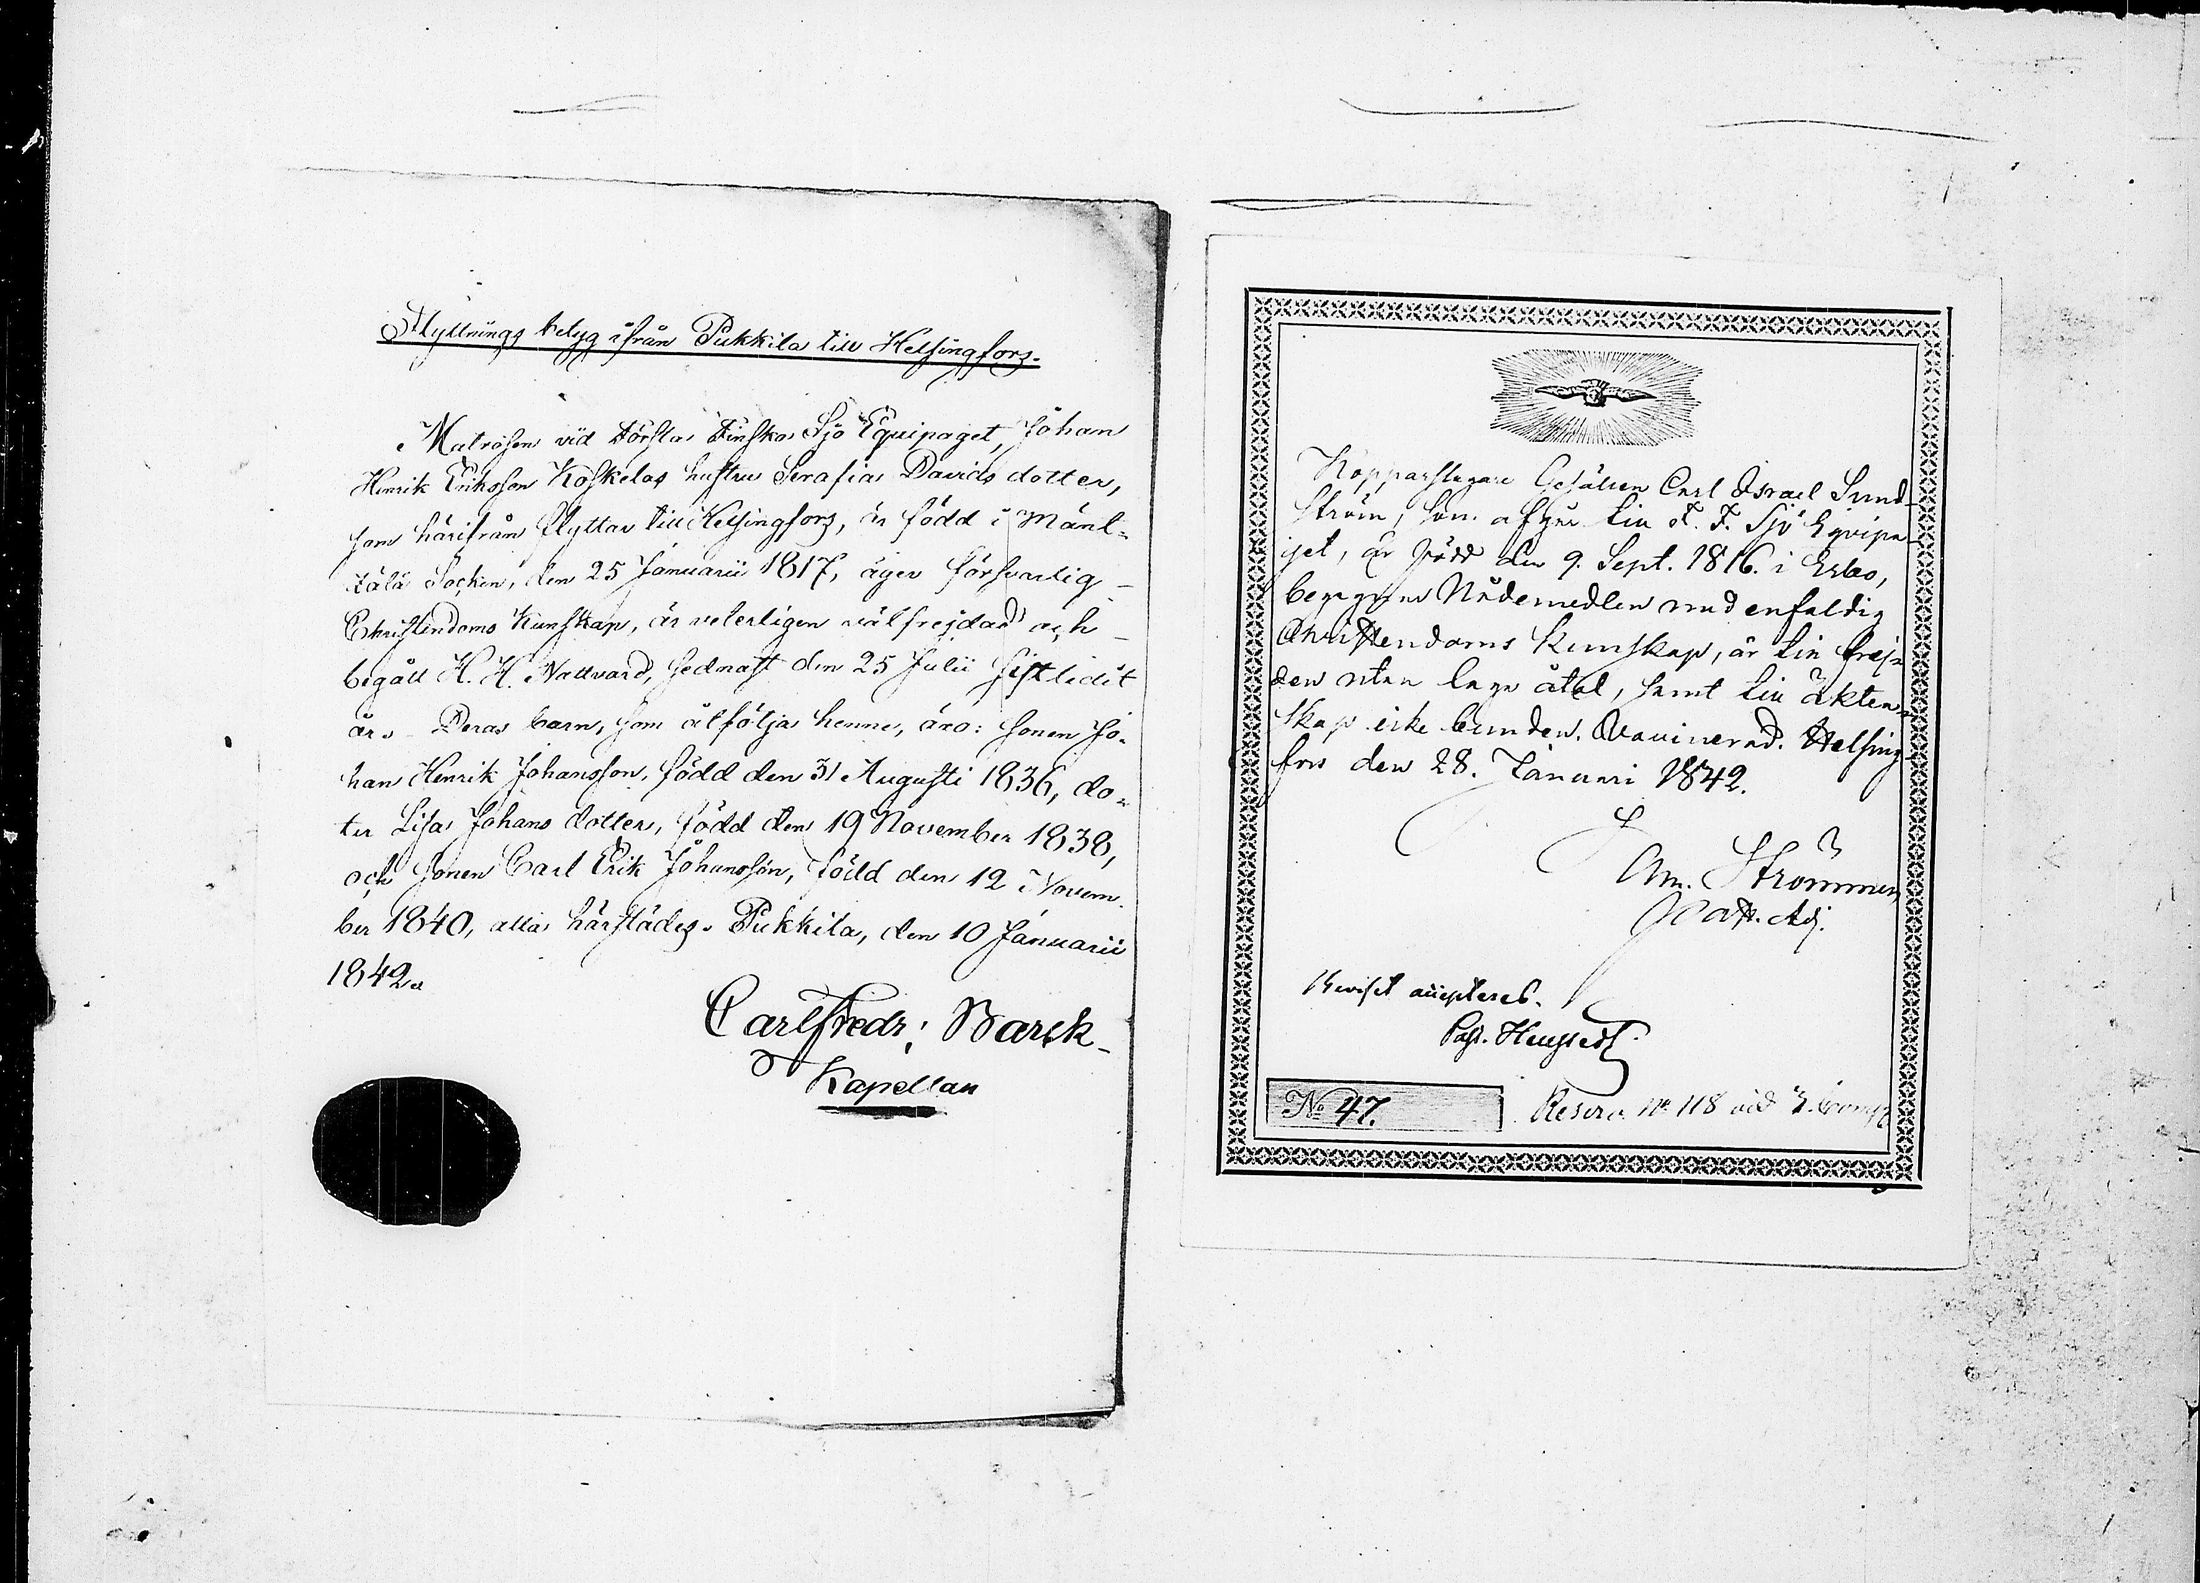 Flyttnings betyg ifrån Pukkila till Helsingfors.
Matrosen vid Första Finska Sjö Equipaget, Johan
Henrik Eriksson Koskelas hustru Serafia Davids dotter,
som härifrån flyttar till Helsingfors, är född i Mänt-
tälä Socken, den 25 Januarii 1817, äger försvarlig
Christendoms Kunskap, är velerligen välfrejdad och
begått H. H. Nattvard, sednast den 25 Julii sistlidit
år. Deras barn, som åtfölja henne, äro: sonen Jo-
han Henrik Johansson, född den 31 Augusti 1836, do-
ter Lisa Johans dotter, född den 19 November 1838,
och sonen Carl Erik Johansson, född den 12 Novem-
ber 1840, alla härstädes. Pukkila, den 10 Januarii
1842.
Carl Fredr: Barck
Kapellan
Kopparslagare Gesällen Carl Israel Sund-
ström, som afgår till F. F. Sjö Equipa-
get, är född den 9. Sept. 1816. i Esbo,
begagnar Nådemedlen med enfaldig
Christendoms kunskap, är till frej-
den utan laga åtal, samt till äkten-
skap icke bunden.
Helsing-
fors den 28. Januari 1842.
Am. Strömmer
Past. Adj.
Beviset accepteras.
Past.
No 47.
Reserv No 118 vid 3. Comp.